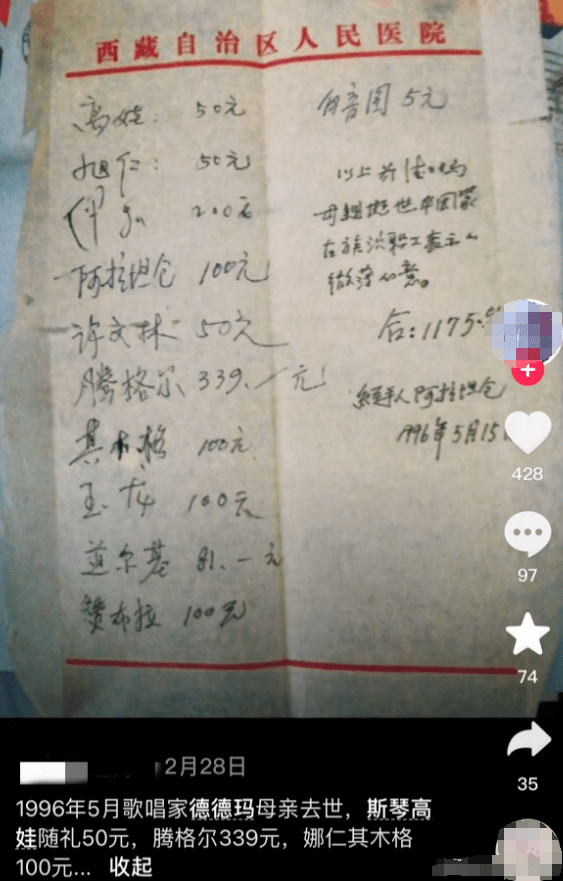 西藏自治区人民医院
高娃: 50元
旭仁: 50元
伊 200元
阿拉坦仓 100元
许文林 50元
腾格尔 339.一元
其木格 100元
玉龙 100元
道尔基 81.一元
赞布拉 100元
白音图 5元
以上为德德玛
母亲逝世中国蒙
古族演职工表示
微薄心意。
合:1175
经手人阿拉坦仓
1996年5月15
428
97
74
35
2月28日
1996年5月歌唱家德德玛母亲去世,斯琴高
娃随礼50元,腾格尔339元,娜仁其木格
100元... 收起